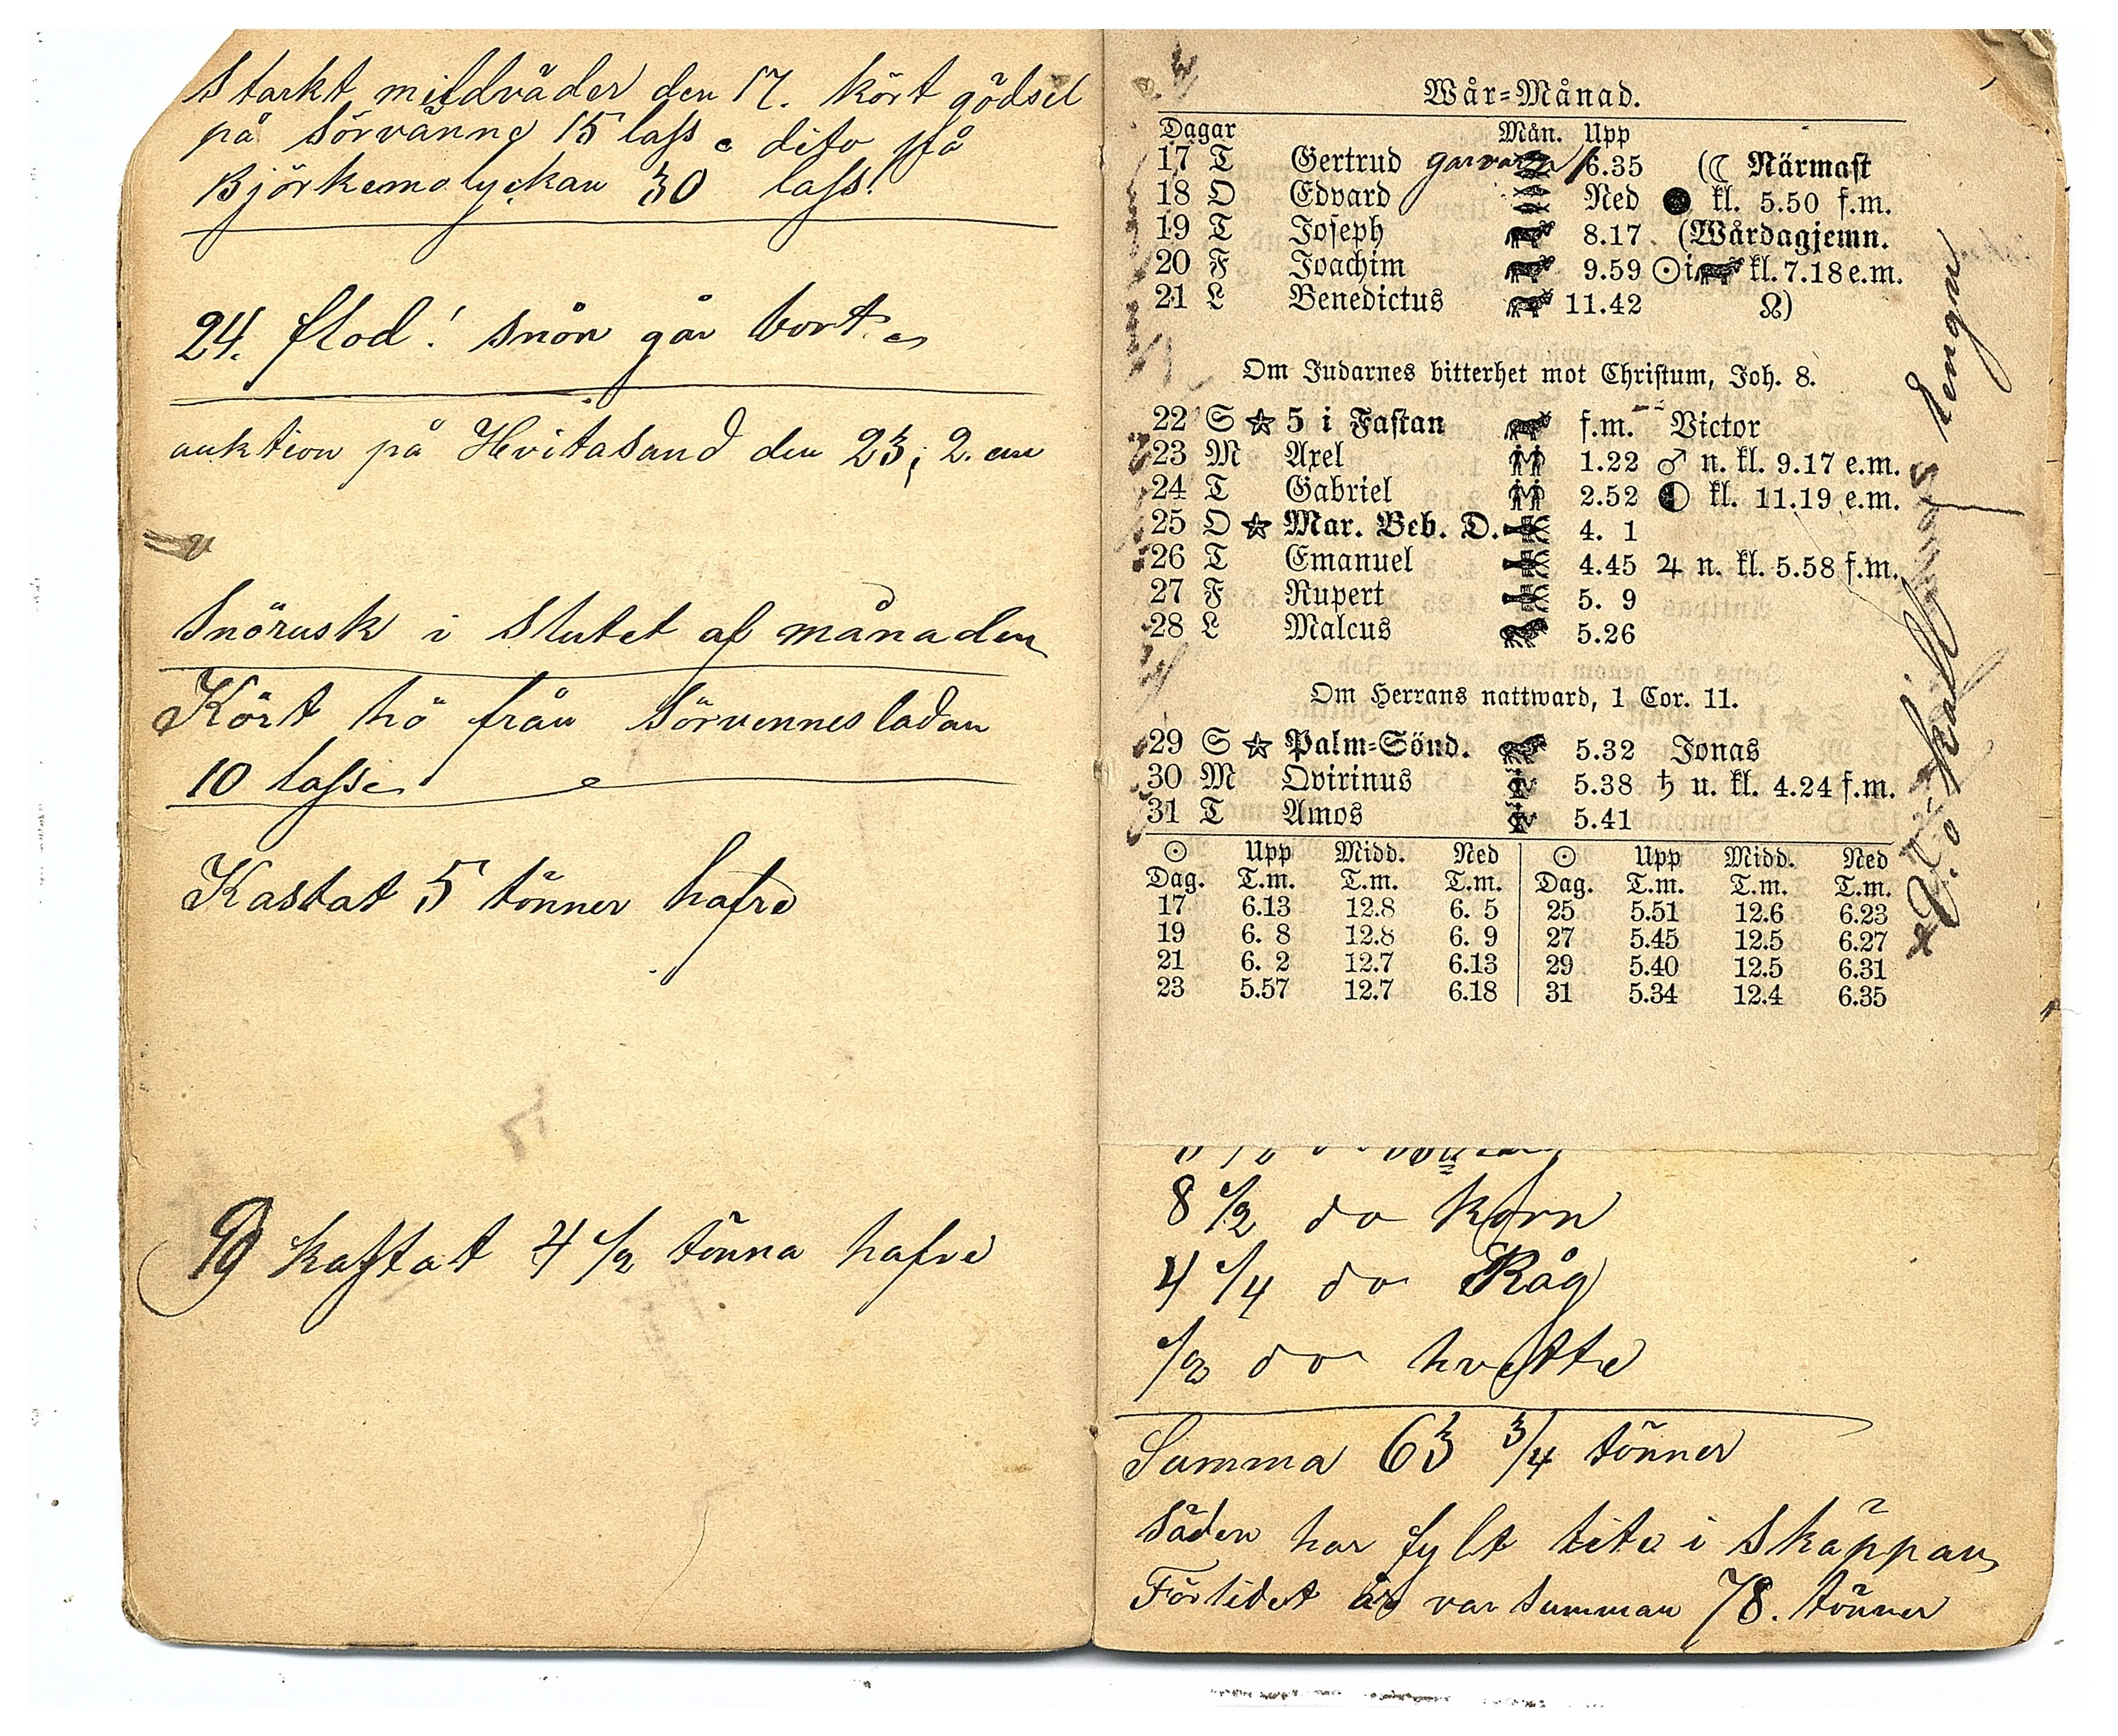 Starkt mildväder den 17. kört gödsel
på Sörvänne 15 lass. dito på
Björkemolyckan 30 lass.
24. flod! snön går bort.
auktion på Hvitasand den 23; 2. em
Snörusk i Slutet af månaden
Kört hö från Sörvennesladan
10 lass
Kastat 5 tönner hafre
kastat 4 1/2 tönna hafre
Wår=Månad.
Dagar Mån. Upp
17 T Gertrud 6.35 (☾ Närmast
18 O Edvard Ned ● kl. 5.50 f.m.
19 T Joseph 8.17 (Wårdagjemn.
20 F Joachim 9.59 ☉ i kl. 7.18 e.m.
21 L Benedictus 11.42 ☊)
Om Judarnes bitterhet mot Christum, Joh. 8.
22 S ☆ 5 i Fastan f.m. Victor
23 M Axel 1.22 ♂ n. kl. 9.17 e.m.
24 T Gabriel 2.52 ◐ kl. 11.19 e.m.
25 O ☆ Mar. Beb. D. 4. 1
26 T Emanuel 4.45 ♃ n. kl. 5.58 f.m.
27 F Rupert 5. 9
28 L Malcus 5.26
Om Herrans nattward, 1 Cor. 11.
29 S ☆ Palm=Sönd. 5.32 Jonas
30 M Qvirinus 5.38 ♄ u. kl. 4.24 f.m.
31 T Amos 5.41
☉ Upp Midd. Ned ☉ Upp Midd. Ned
Dag. T.m. T.m. T.m. Dag. T.m. T.m. T.m.
17 6.13 12.8 6. 5 25 5.51 12.6 6.23
19 6. 8 12.8 6. 9 27 5.45 12.5 6.27
21 6. 2 12.7 6.13 29 5.40 12.5 6.31
23 5.57 12.7 6.18 31 5.34 12.4 6.35
8 1/2 do Korn
4 1/4 do Råg
1/2 do hvette
Summa 63 3/4 tönner
Säden har fylt lite i Skäppan
Förlidet år var summan 78. tönner